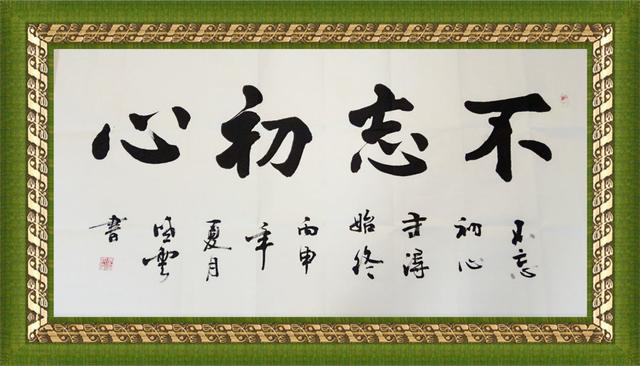 不忘初心
不忘
初心
方得
始終
丙申
年
夏月
雲
書